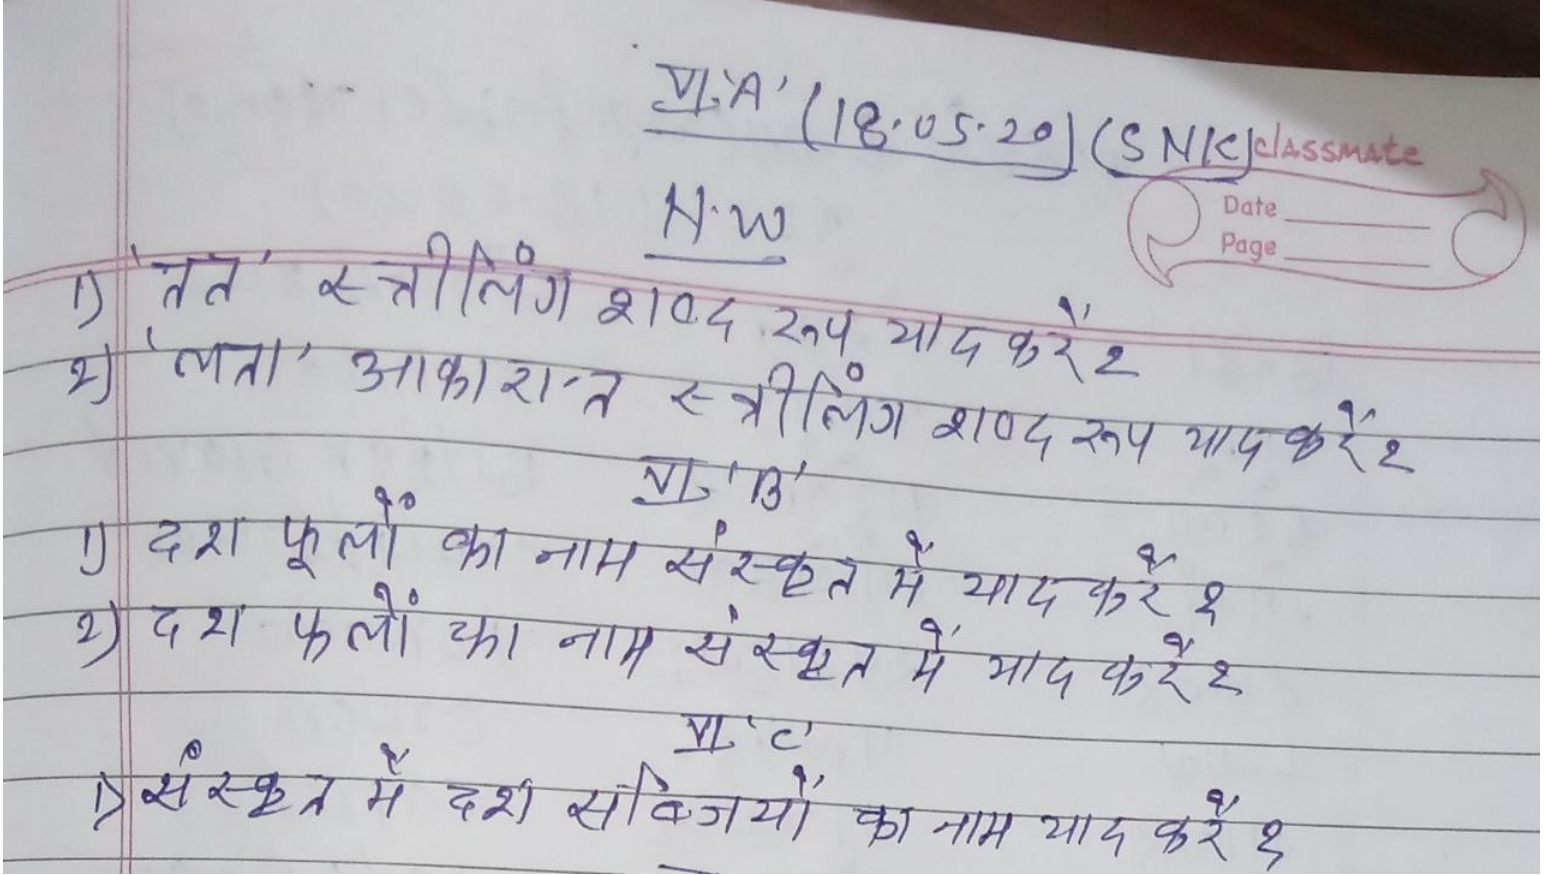 VI. 'A' (18.05.20) (SNK) classmate
Date
Page
H.W
1) 'तत्' स्त्रीलिंग शब्द रूप याद करें ?
2) 'लता' आकारान्त स्त्रीलिंग शब्द रूप याद करें ?
VI. 'B'
1) दश फूलों का नाम संस्कृत में याद करें ?
2) दश फलों का नाम संस्कृत में याद करें ?
VI. 'C'
1) संस्कृत में दश सब्जियों का नाम याद करें ?